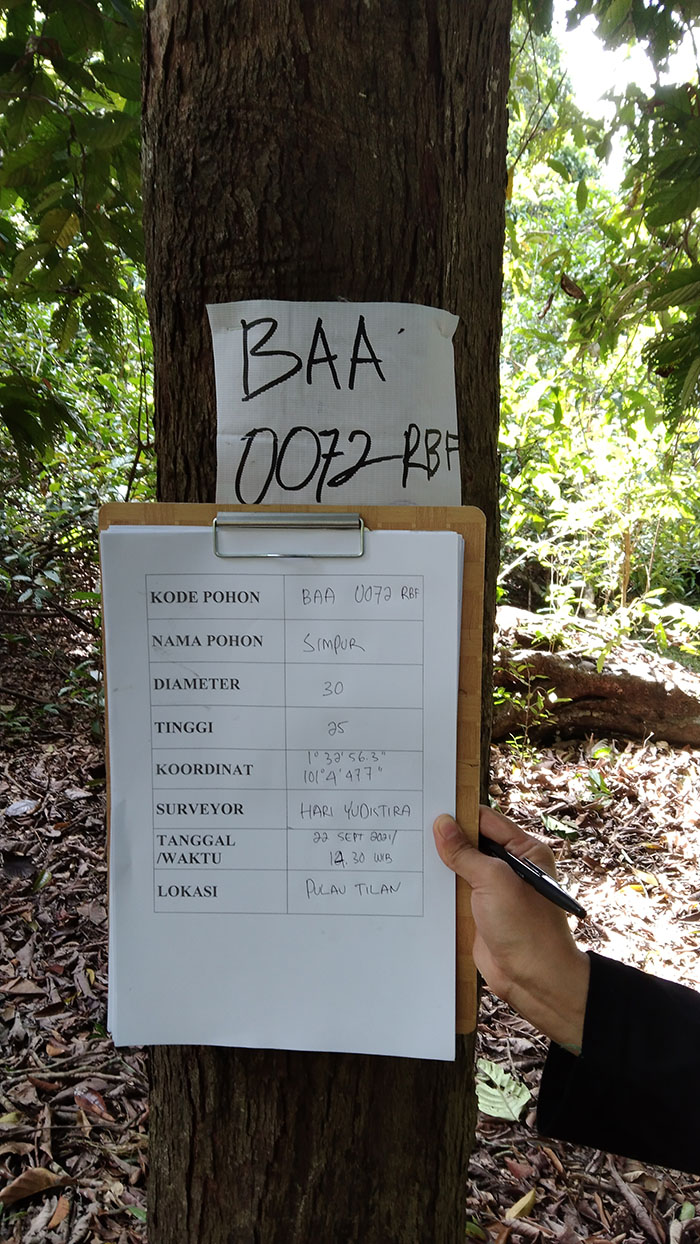 BAA
0072 RBF
KODE POHON BAA 0072 RBF
NAMA POHON SIMPUR
DIAMETER 30
TINGGI 25
KOORDINAT 1° 32' 56.3"
101° 4' 47.7"
SURVEYOR HARI YUDISTIRA
TANGGAL 22 SEPT 2021/
/WAKTU 14.30 WIB
LOKASI PULAU TILAN